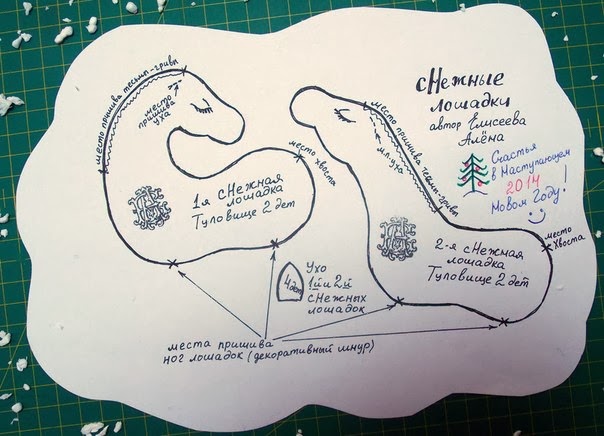 сНежные
лошадки
автор Елисеева
Алёна
Счастья
в Наступающем
2014
Новом Году!
место пришива тесьмы-гривы
место
пришива
уха
место хвоста
1я сНежная
лошадка
Туловище 2 дет
место пришива тесьмы-гривы
м.п. уха
место
хвоста
2-я сНежная
лошадка
Туловище 2 дет
4 дет
Ухо
1й и 2й
сНежных
лошадок
места пришива
ног лошадок (декоративный шнур)